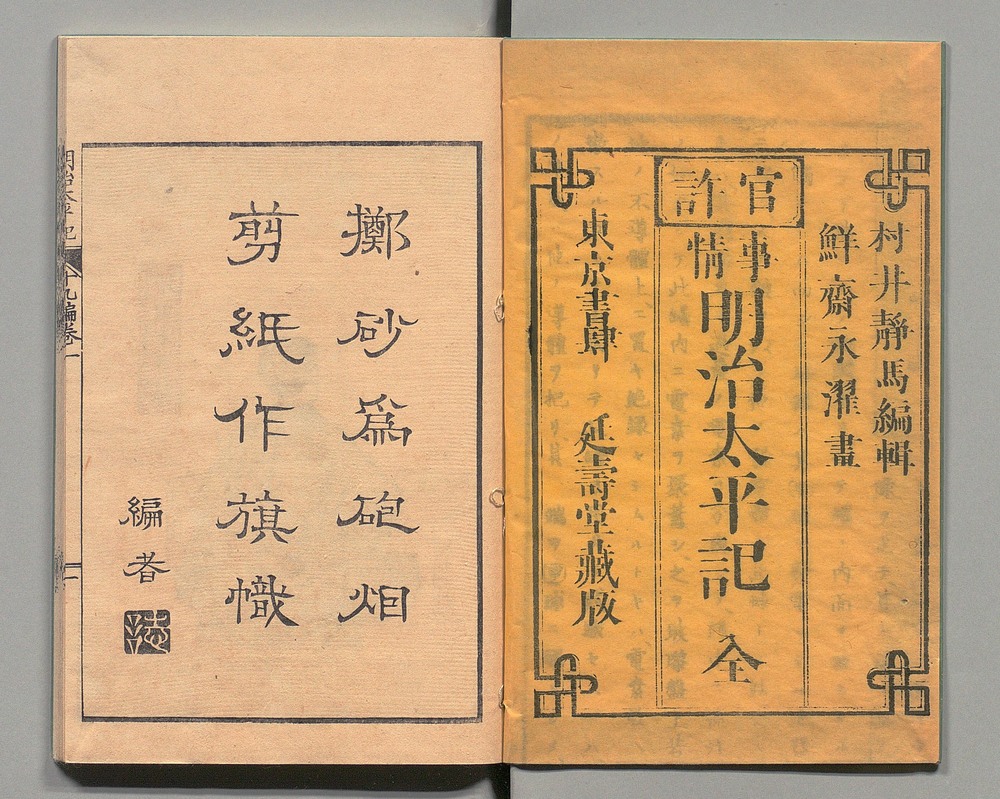 村井靜馬編輯
鮮齋永濯畫
官許
事情
明治太平記 全
東京書肆 延壽堂藏版
擲砂爲砲烟
剪紙作旗幟
編者
誌
明治太平記 十九編卷一 一